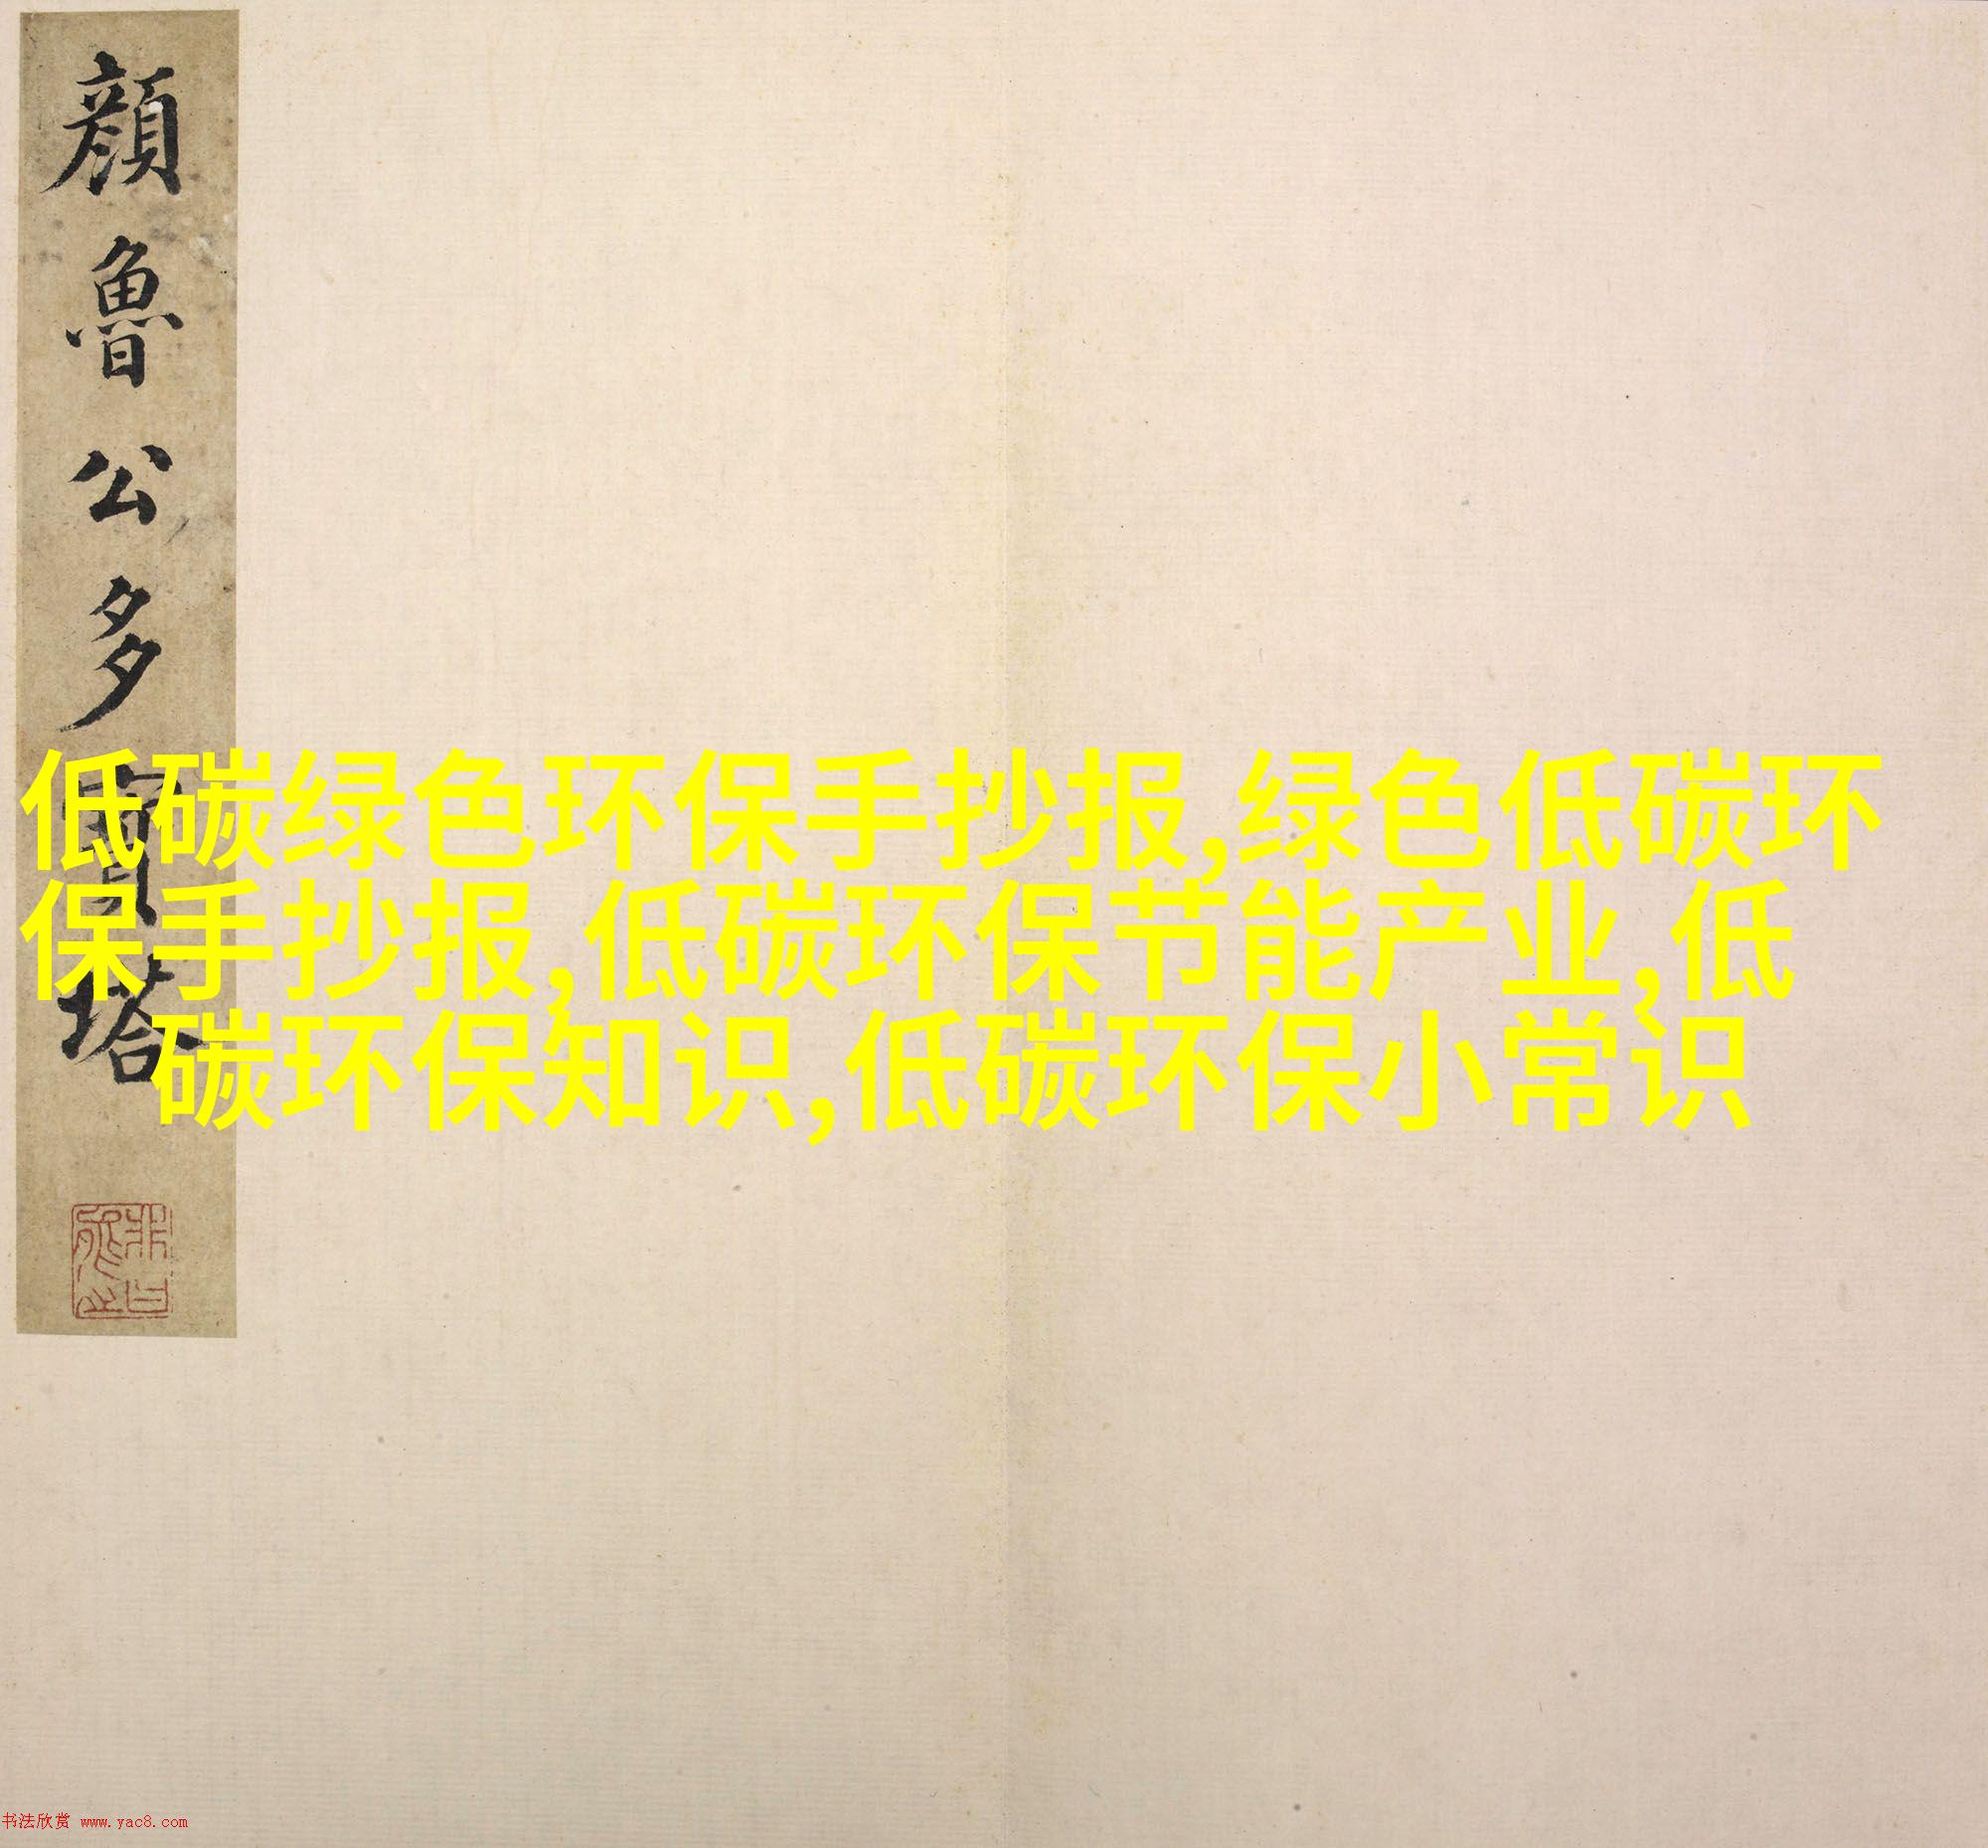 顔魯公多寶塔
低碳绿色环保手抄报,绿色低碳环
保手抄报,低碳环保节能产业,低
碳环保知识,低碳环保小常识
书法欣赏 www.yac8.com